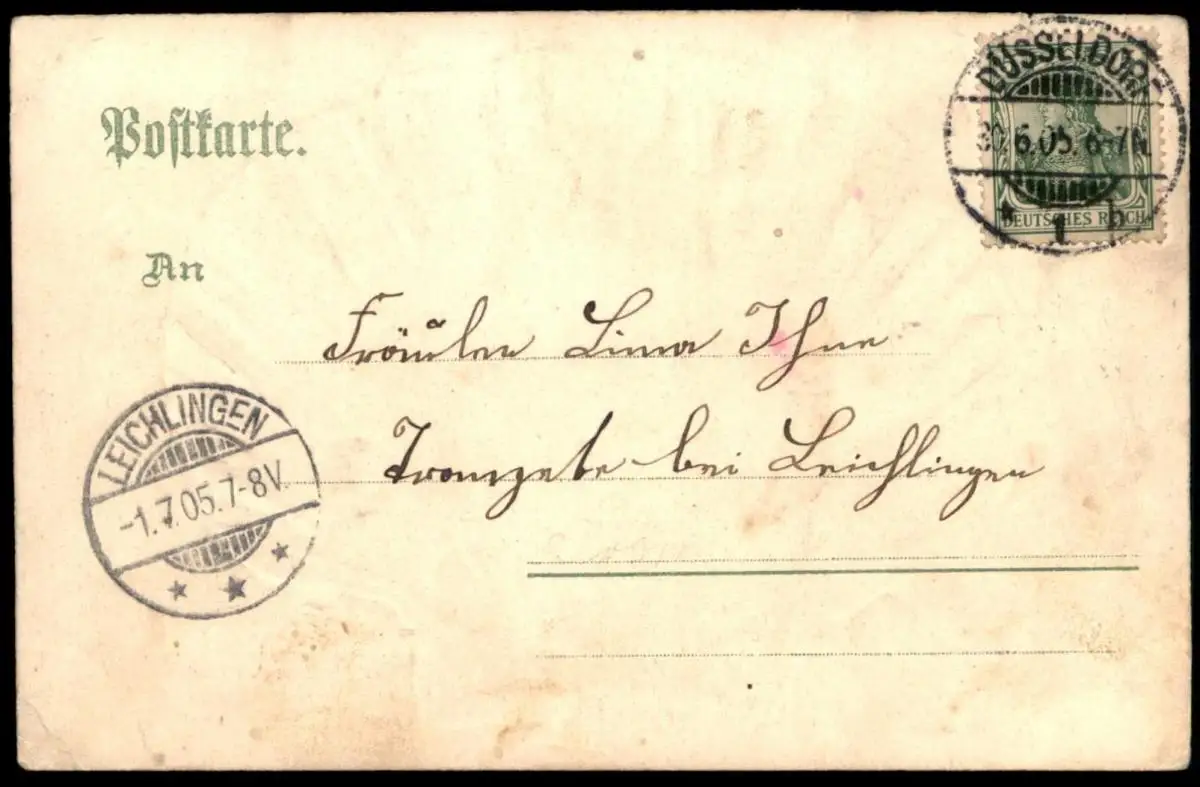 Postkarte.
DÜSSELDORF
30.6.05. 6-7N.
* 1 b.
DEUTSCHES REICH
An
Fräulen Lina Ihne
Trompete bei Leichlingen
LEICHLINGEN
-1.7.05.7-8V.